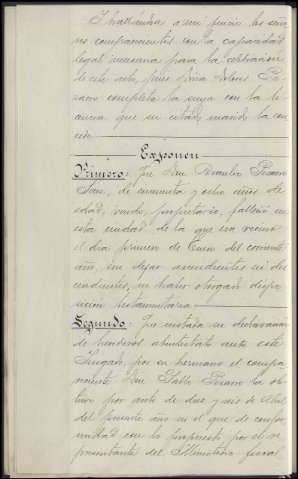 I hallandose a mi juicio los seño
res comparecientes con la capacidad
legal necesaria para la celebración
de este acto, pues Doña Dolores Pi-
zarro completa la suya con la li-
cencia que su citado marido la con
cede
Exponen
Primero: Que Don Braulio Pizarro
, de cincuenta y ocho años de
edad, viudo, propietario, falleció en
esta ciudad de la que era vecino
el día primero de Enero del corriente
año, sin dejar ascendientes ni des
cendientes, ni haber otorgado dispo
sición testamentaria
Segundo: Que instada su declaración
de herederos abintestato ante este
Juzgado, por su hermano el compa
reciente Don Pablo Pizarro la ob
tuvo por auto de diez y seis de Abril
del presente año en el que de confor
midad con lo propuesto por el re
presentante del Ministerio fiscal